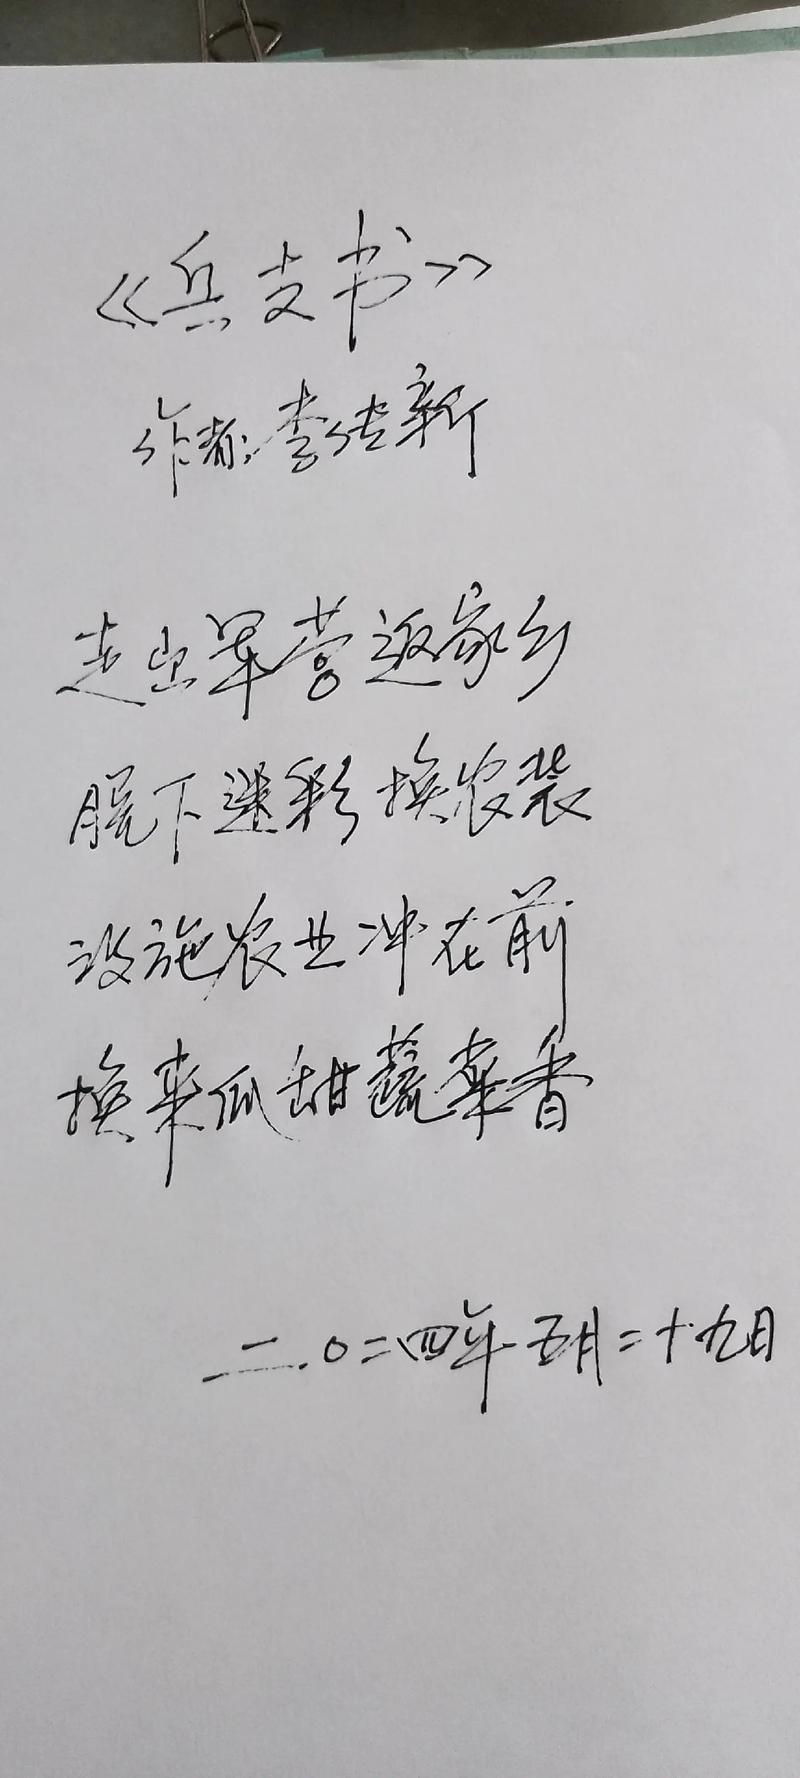 《兵支书》
作者:李传新
走出军营返家乡
脱下迷彩换农装
设施农业冲在前
换来瓜甜蔬菜香
二〇二四年五月二十九日